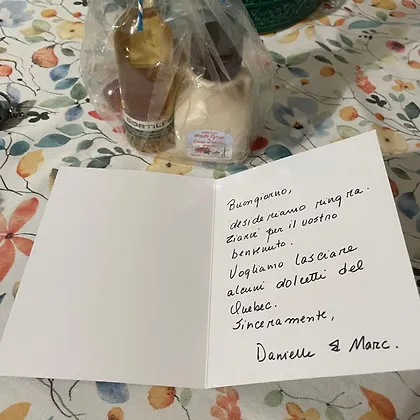 Buongiorno,
desideriamo ringra.
ziarvi per il vostro
benvenuto.
Vogliamo lasciare
alcuni dolcetti del
Quebec.
Sinceramente,
Danielle & Marc.